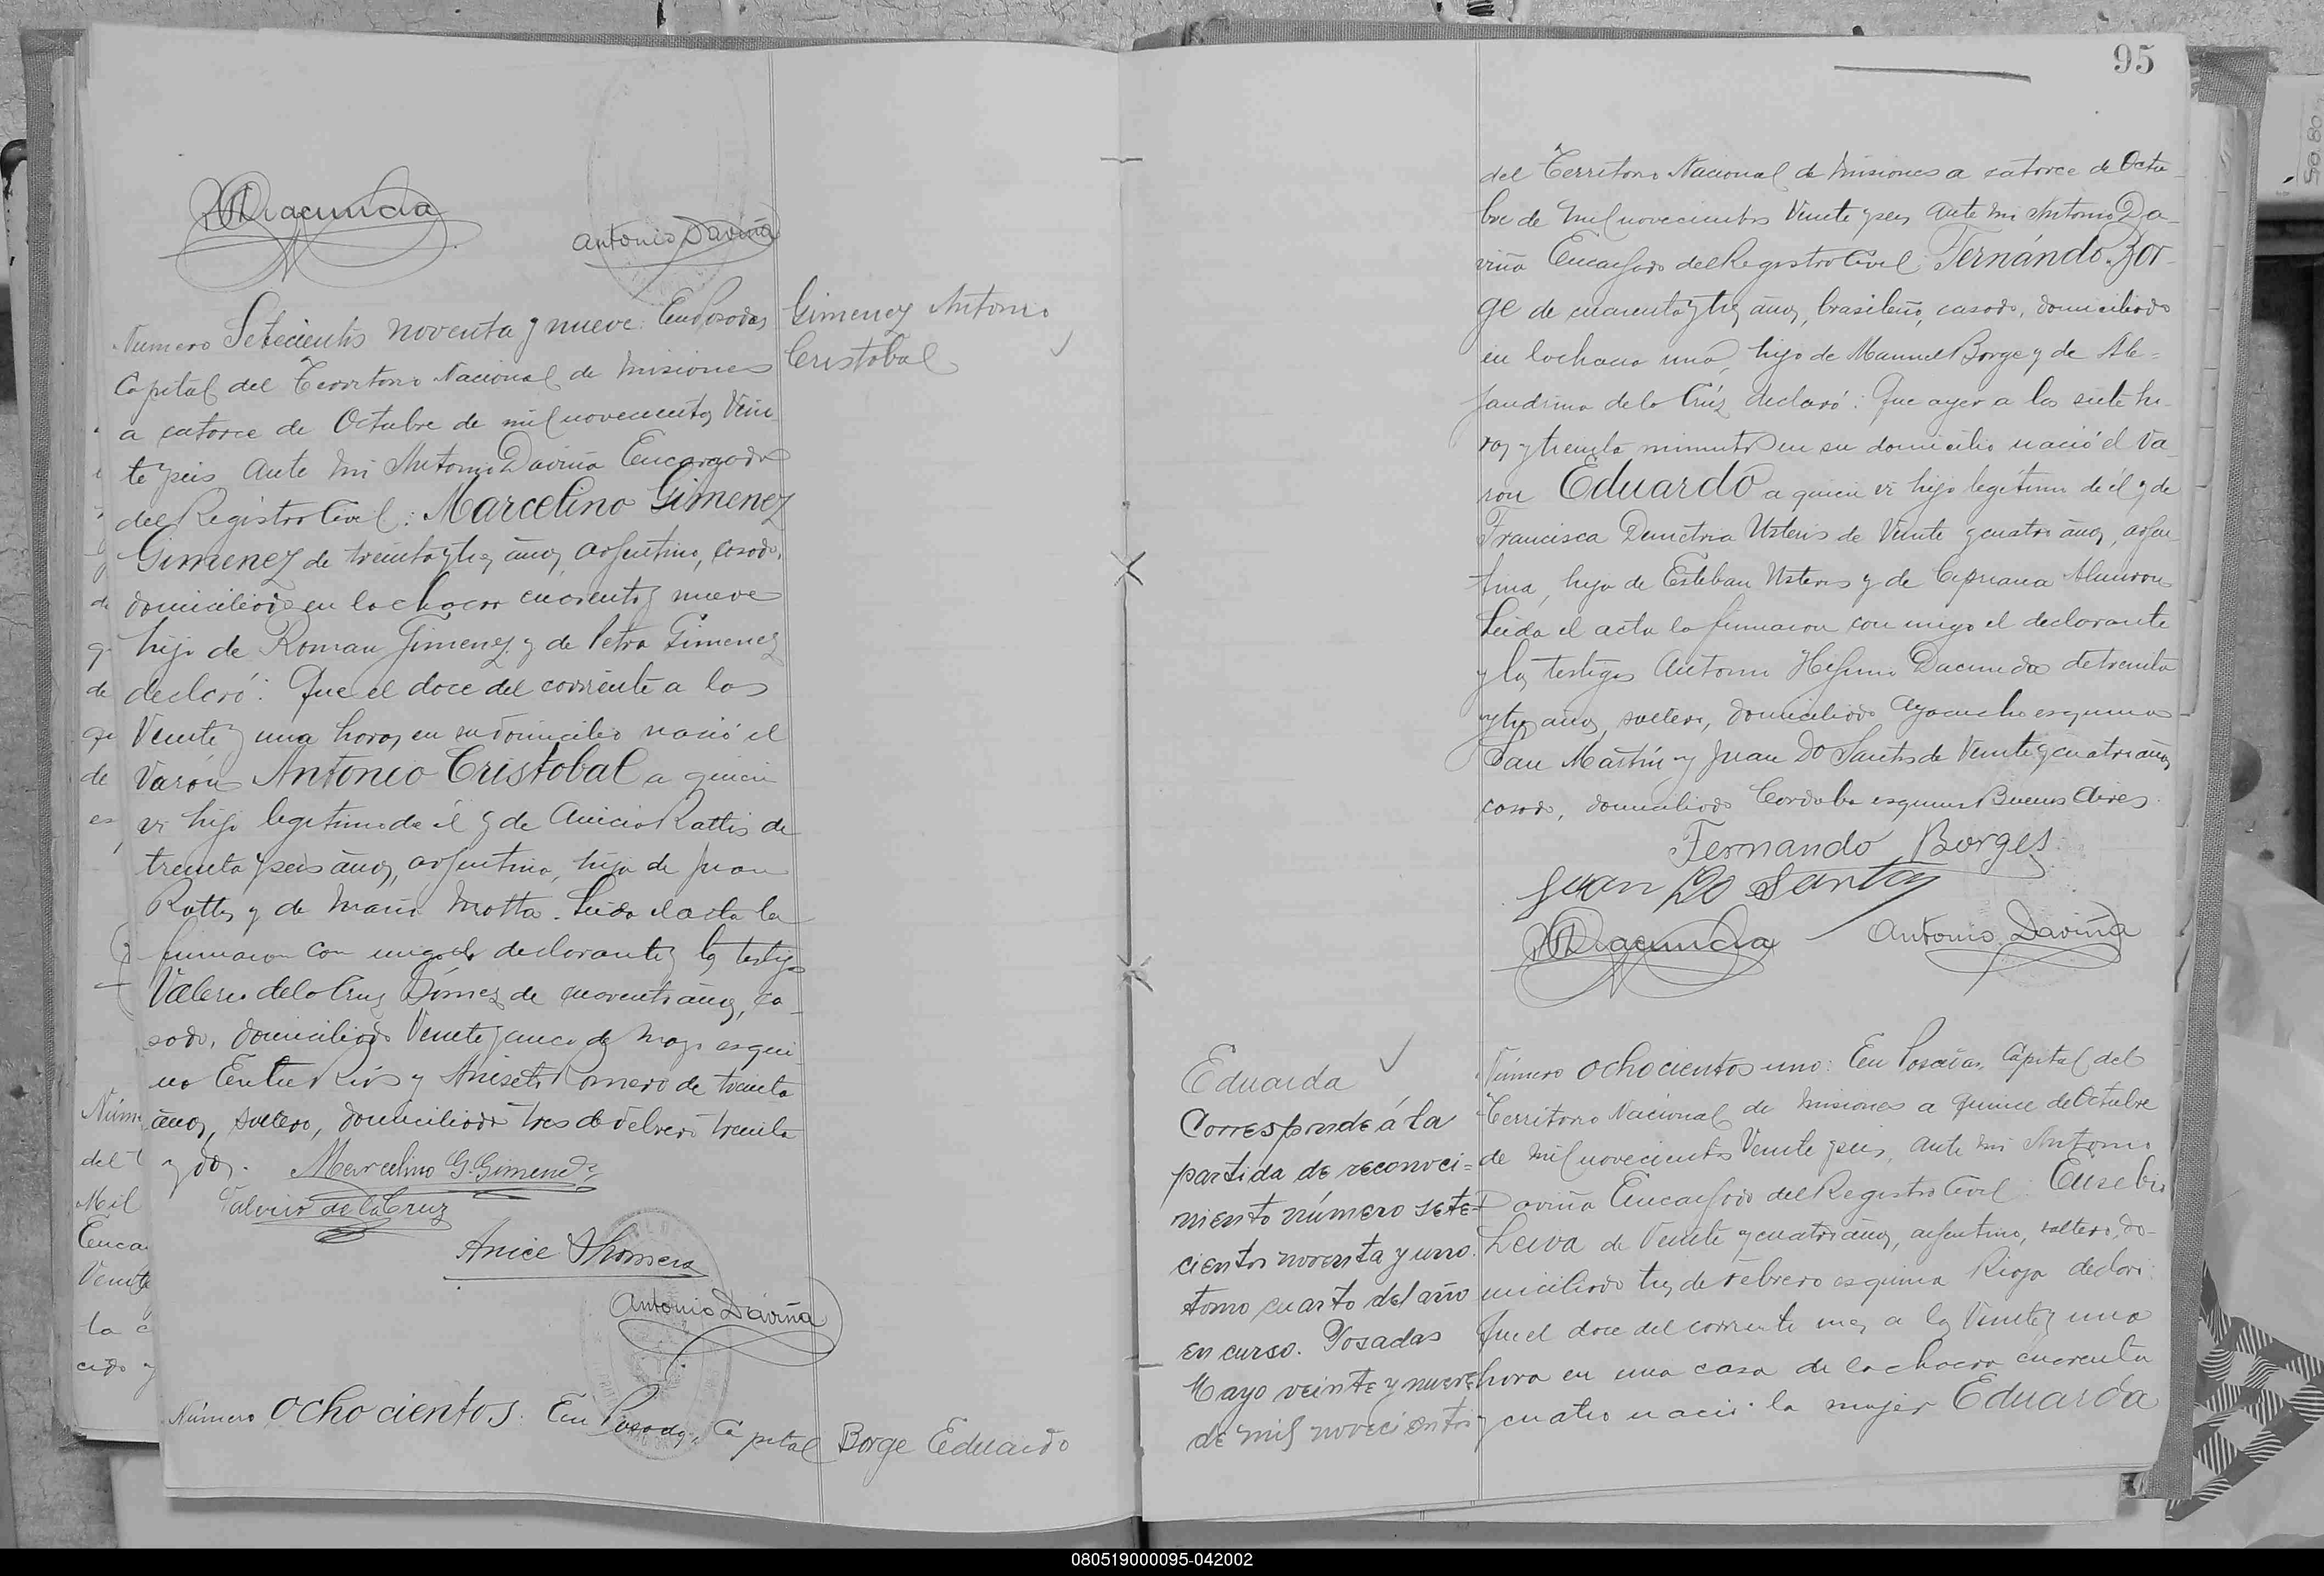 Dacunda
Antonio Daviña
Número Setecientos noventa y nueve: En Posadas
Capital del Territorio Nacional de Misiones
a catorce de Octubre de mil novecientos Vein
te y seis ante mi Antonio Daviña Encargado
del Registro Civil: Marcelino Gimenez
Gimenez de treinta y tres años, argentino, casado,
domiciliado en la chacra cuarenta y nueve
hijo de Roman Gimenez y de Petra Gimenez
declaró: Que el doce del corriente a las
Veinte y una horas en su domicilio nació el
Varón Antonio Cristobal a quien
vi hijo legitimo de él y de Anicia Rattis de
treinta y seis años, argentina, hija de Juan
Rattis y de Maria Motta. Leida el acta la
firmaron con migo el declarante y los testigos
Valerio de la Cruz Dimez de cuarenta años, ca
sado, domiciliado Veinte y cinco de Mayo esqui
na Entre Rios y Aniseto Romero de treinta
años, soltero, domiciliado tres de Febrero treinta
y dos.
Marcelino G. Gimenez
Valerio de la Cruz
Antonio Daviña
Número Ochocientos: En Posadas, Capital
Gimenez Antonio
Cristobal
Borge Eduardo
95
del Territorio Nacional de Misiones a catorce de Octu
bre de mil novecientos Veinte y seis ante mi Antonio Da-
viña Encargado del Registro Civil: Fernándo Bor-
ge de cuarenta y tres años, brasileño, casado, domiciliado
en la chacra una, hijo de Manuel Borge y de Ale=
jandrina de la Crúz declaró: Que ayer a las siete ho-
ras y treinta minutos en su domicilio nació el va
ron Eduardo a quien vi hijo legítimo de él y de
Francisca Demetria Usteris de Veinte y cuatro años, argen
tina, hija de Esteban Usteris y de Cipriana Almiron
Leida el acta la firmaron con migo el declarante
y los testigos Antonio Higinio Dacunda de treinta
y tres años, soltero, domiciliado Ayacucho esquina
San Martín y Juan Do Santos de Veinte y cuatro años,
casado, domiciliado Cordoba esquina Buenos Aires.
Fernando Borges
Juan Do Santos
Dacunda
Antonio Daviña
Eduarda
Corresponde á la
partida de reconoci=
miento número sete=
cientos noventa y uno
tomo cuarto del año
en curso. Posadas
Mayo veinte y nueve
de mil novecientos
Número Ochocientos uno: En Posadas, Capital del
Territorio Nacional de Misiones a quince de Octubre
de mil novecientos Veinte y seis, ante mi Antonio
Daviña Encargado del Registro Civil: Eusebio
Leiva de Veinte y cuatro años, argentino, soltero, do-
miciliado tres de Febrero esquina Rioja declaró:
Que el doce del corriente mes a las Veinte y una
hora en una casa de la chacra cuarenta
y cuatro nació la mujer Eduarda
080519000095-042002